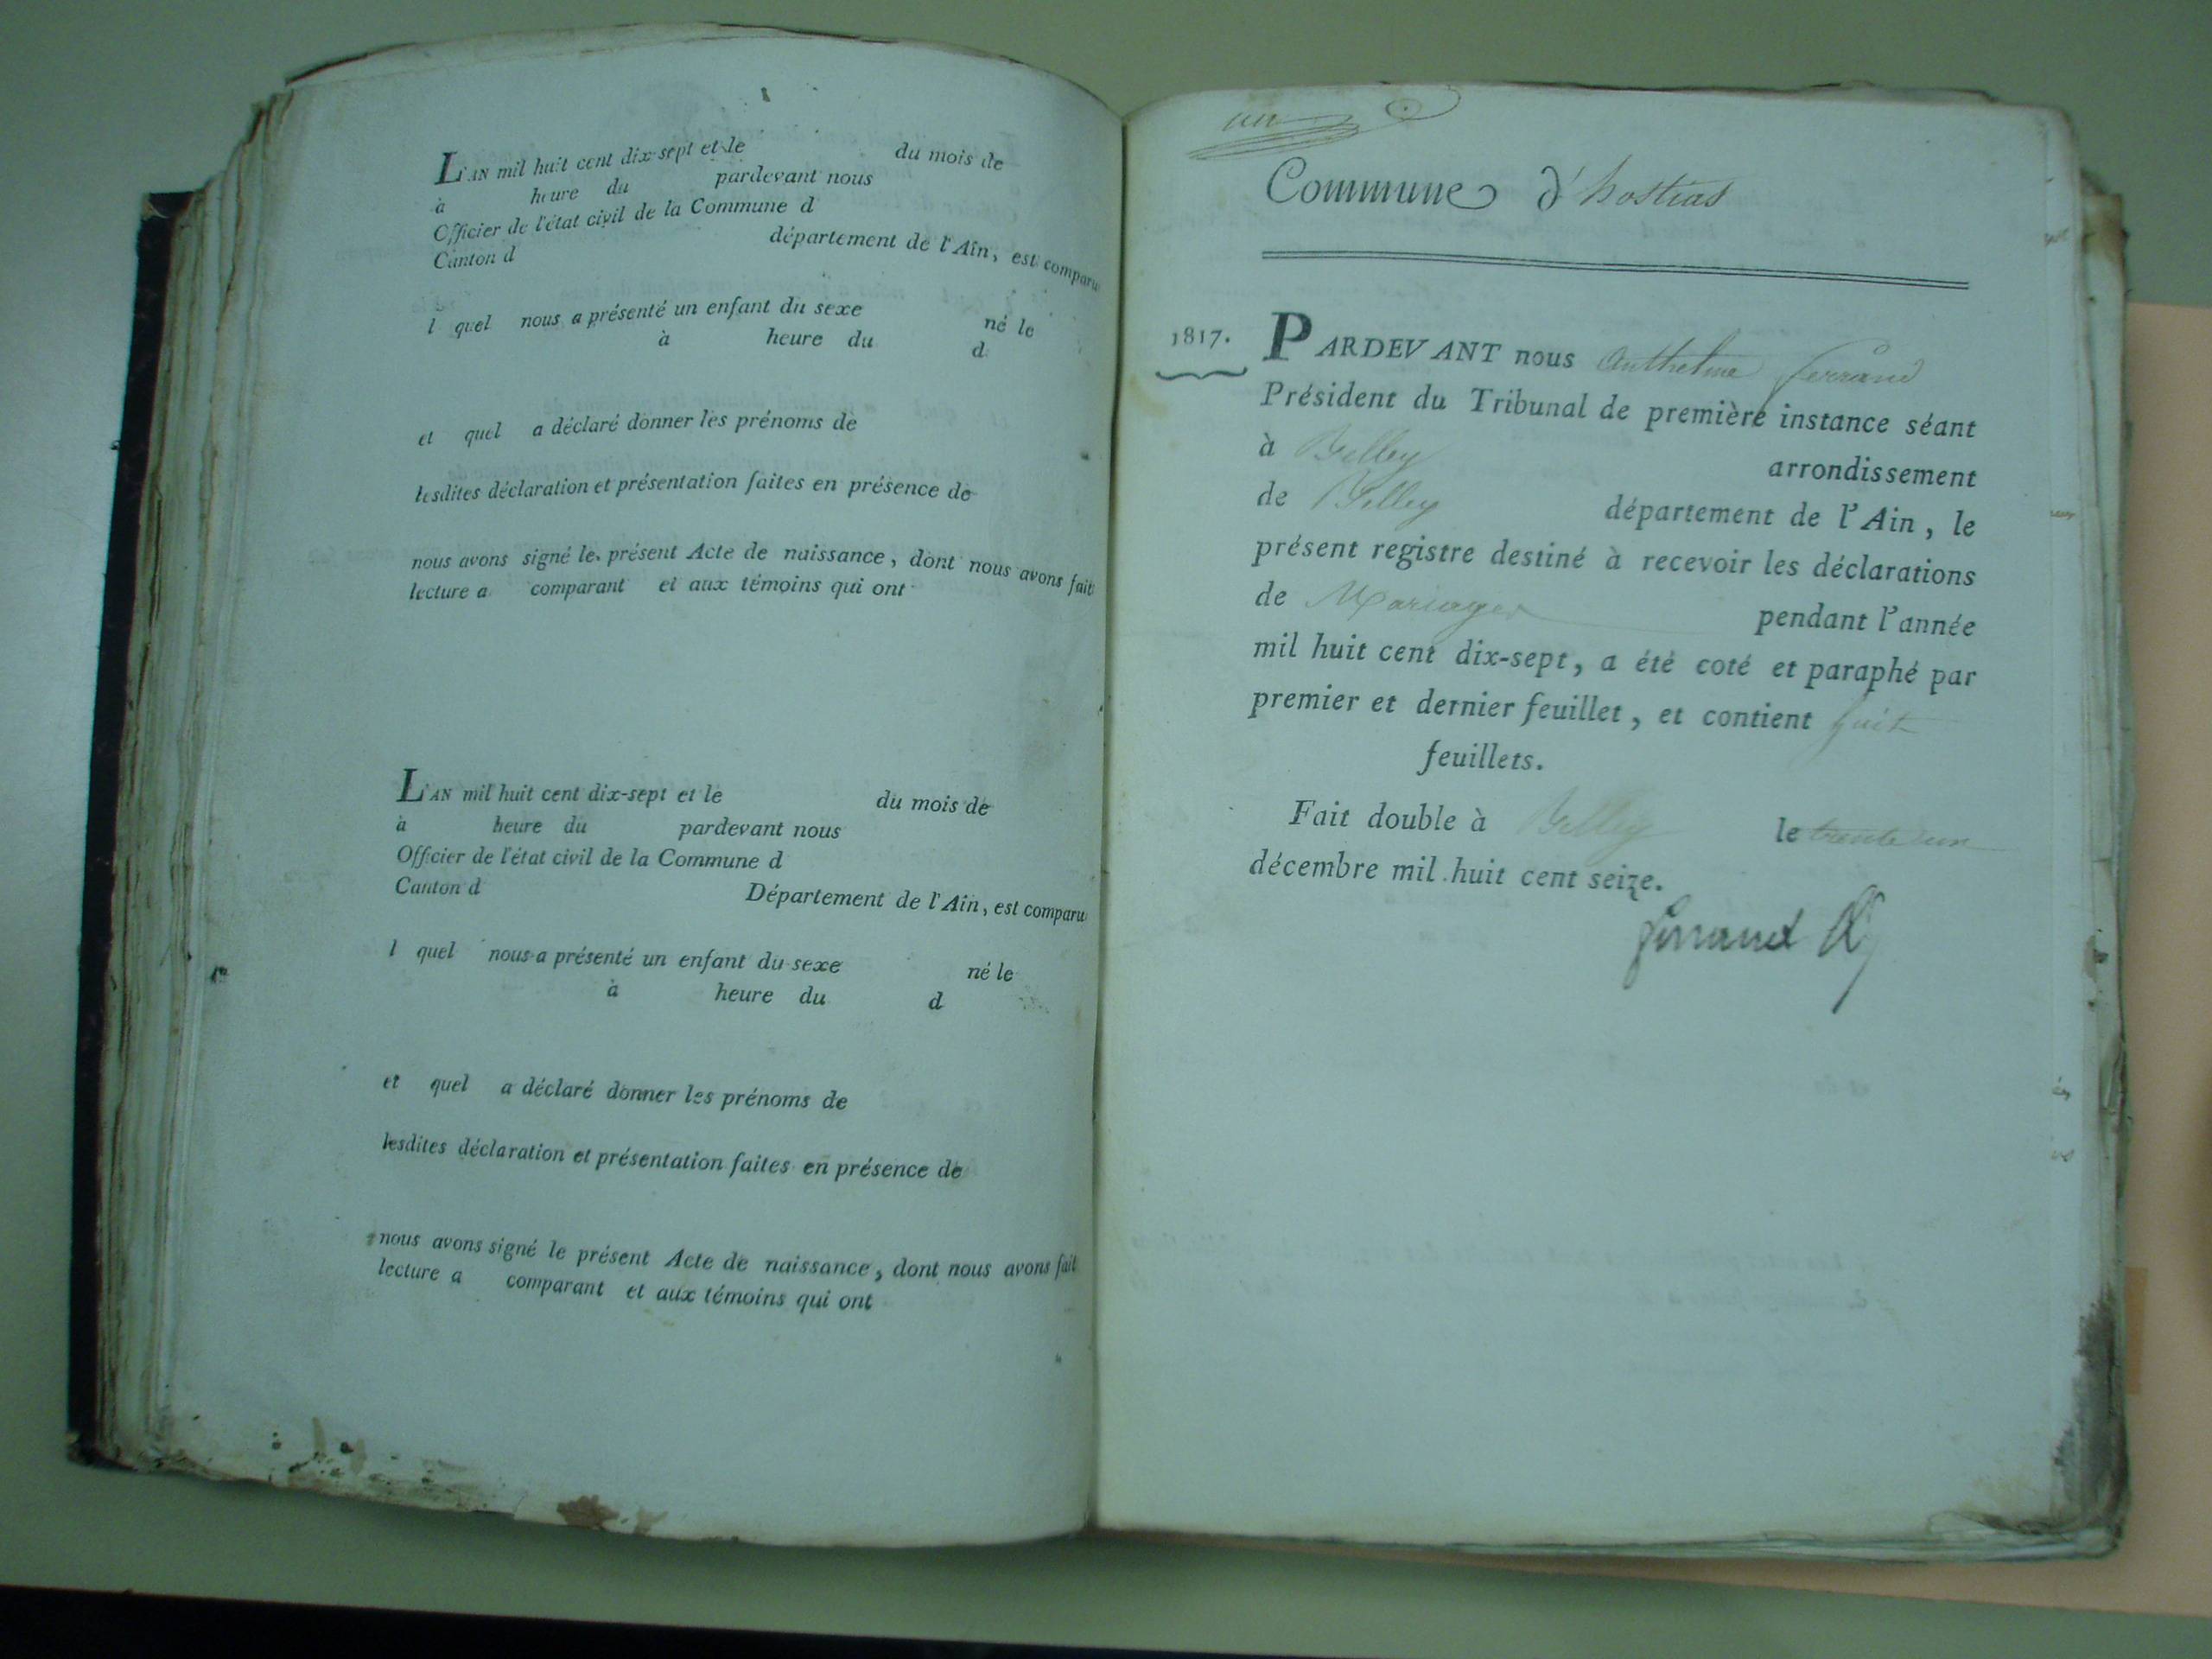 L'AN mil huit cent dix-sept et le du mois de
à heure du pardevant nous
Officier de l'état civil de la Commune d
Canton d département de l'Ain, est comparu
l quel nous a présenté un enfant du sexe né le
à heure du d
et quel a déclaré donner les prénoms de
lesdites déclaration et présentation faites en présence de
nous avons signé le présent Acte de naissance, dont nous avons fait
lecture a comparant et aux témoins qui ont
L'AN mil huit cent dix-sept et le du mois de
à heure du pardevant nous
Officier de l'état civil de la Commune d
Canton d Département de l'Ain, est comparu
l quel nous a présenté un enfant du sexe né le
à heure du d
et quel a déclaré donner les prénoms de
lesdites déclaration et présentation faites en présence de
nous avons signé le présent Acte de naissance, dont nous avons fait
lecture a comparant et aux témoins qui ont
un
Commune d'hostias
1817. PARDEVANT nous Anthelme ferrand
Président du Tribunal de première instance séant
à Belley arrondissement
de Belley département de l'Ain, le
présent registre destiné à recevoir les déclarations
de Mariages pendant l'année
mil huit cent dix-sept, a été coté et paraphé par
premier et dernier feuillet, et contient huit
feuillets.
Fait double à Belley le trente un
décembre mil huit cent seize.
ferrand